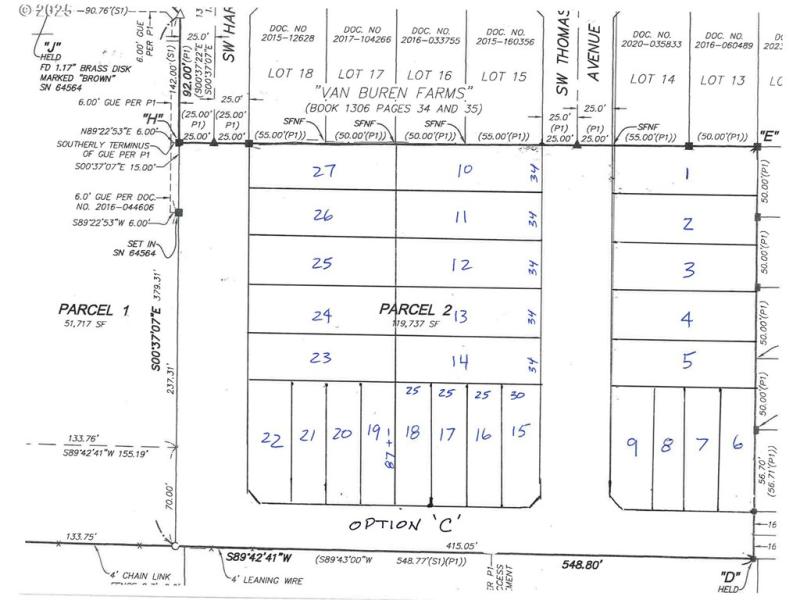 © 2025
-90.76'(S1)
"J"
HELD
FD 1.17" BRASS DISK
MARKED "BROWN"
SN 64564
6.00' GUE
PER P1
25.0'
142.00'(S1)
92.00'(P1)
(S00°37'22"E
(S00°37'07"E
SW HAR
25.0'
6.00' GUE PER P1
"H"
N89°22'53"E 6.00'
SOUTHERLY TERMINUS
OF GUE PER P1
S00°37'07"E 15.00'
6.0' GUE PER DOC.
NO. 2016-044606
S89°22'53"W 6.00'
SET IN
SN 64564
(25.00'
P1)
25.00'
(25.00'
P1)
25.00'
DOC. NO
2015-12628
DOC. NO.
2017-104266
DOC. NO.
2016-033755
DOC. NO.
2015-160356
LOT 18
LOT 17
LOT 16
LOT 15
"VAN BUREN FARMS"
(BOOK 1306 PAGES 34 AND 35)
SFNF
SFNF
SFNF
(55.00'(P1))
(50.00'(P1))
(50.00'(P1))
(55.00'(P1))
SW THOMAS
AVENUE
25.0'
25.0'
(25.00'
P1)
25.00'
(25.00'
P1)
25.00'
DOC. NO.
2020-035833
DOC. NO.
2016-060489
DOC.
LOT 14
LOT 13
SFNF
(55.00'(P1))
(50.00'(P1))
"E"
27
10
34
1
50.00'(P1)
26
11
34
2
50.00'(P1)
25
12
34
3
50.00'(P1)
PARCEL 1
51,717 SF
24
PARCEL 2
119,737 SF
13
34
4
50.00'(P1)
23
14
34
5
50.00'(P1)
S00°37'07"E 379.31'
237.31'
25
25
25
30
22
21
20
19
87 +-
18
17
16
15
9
8
7
6
56.70'
(56.71'(P1))
133.76'
S89°42'41"W 155.19'
70.00'
OPTION 'C'
16
16
133.75'
S89°42'41"W
(S89°43'00"W
548.77'(S1)(P1))
415.05'
548.80'
4' CHAIN LINK
4' LEANING WIRE
"D"
HELD